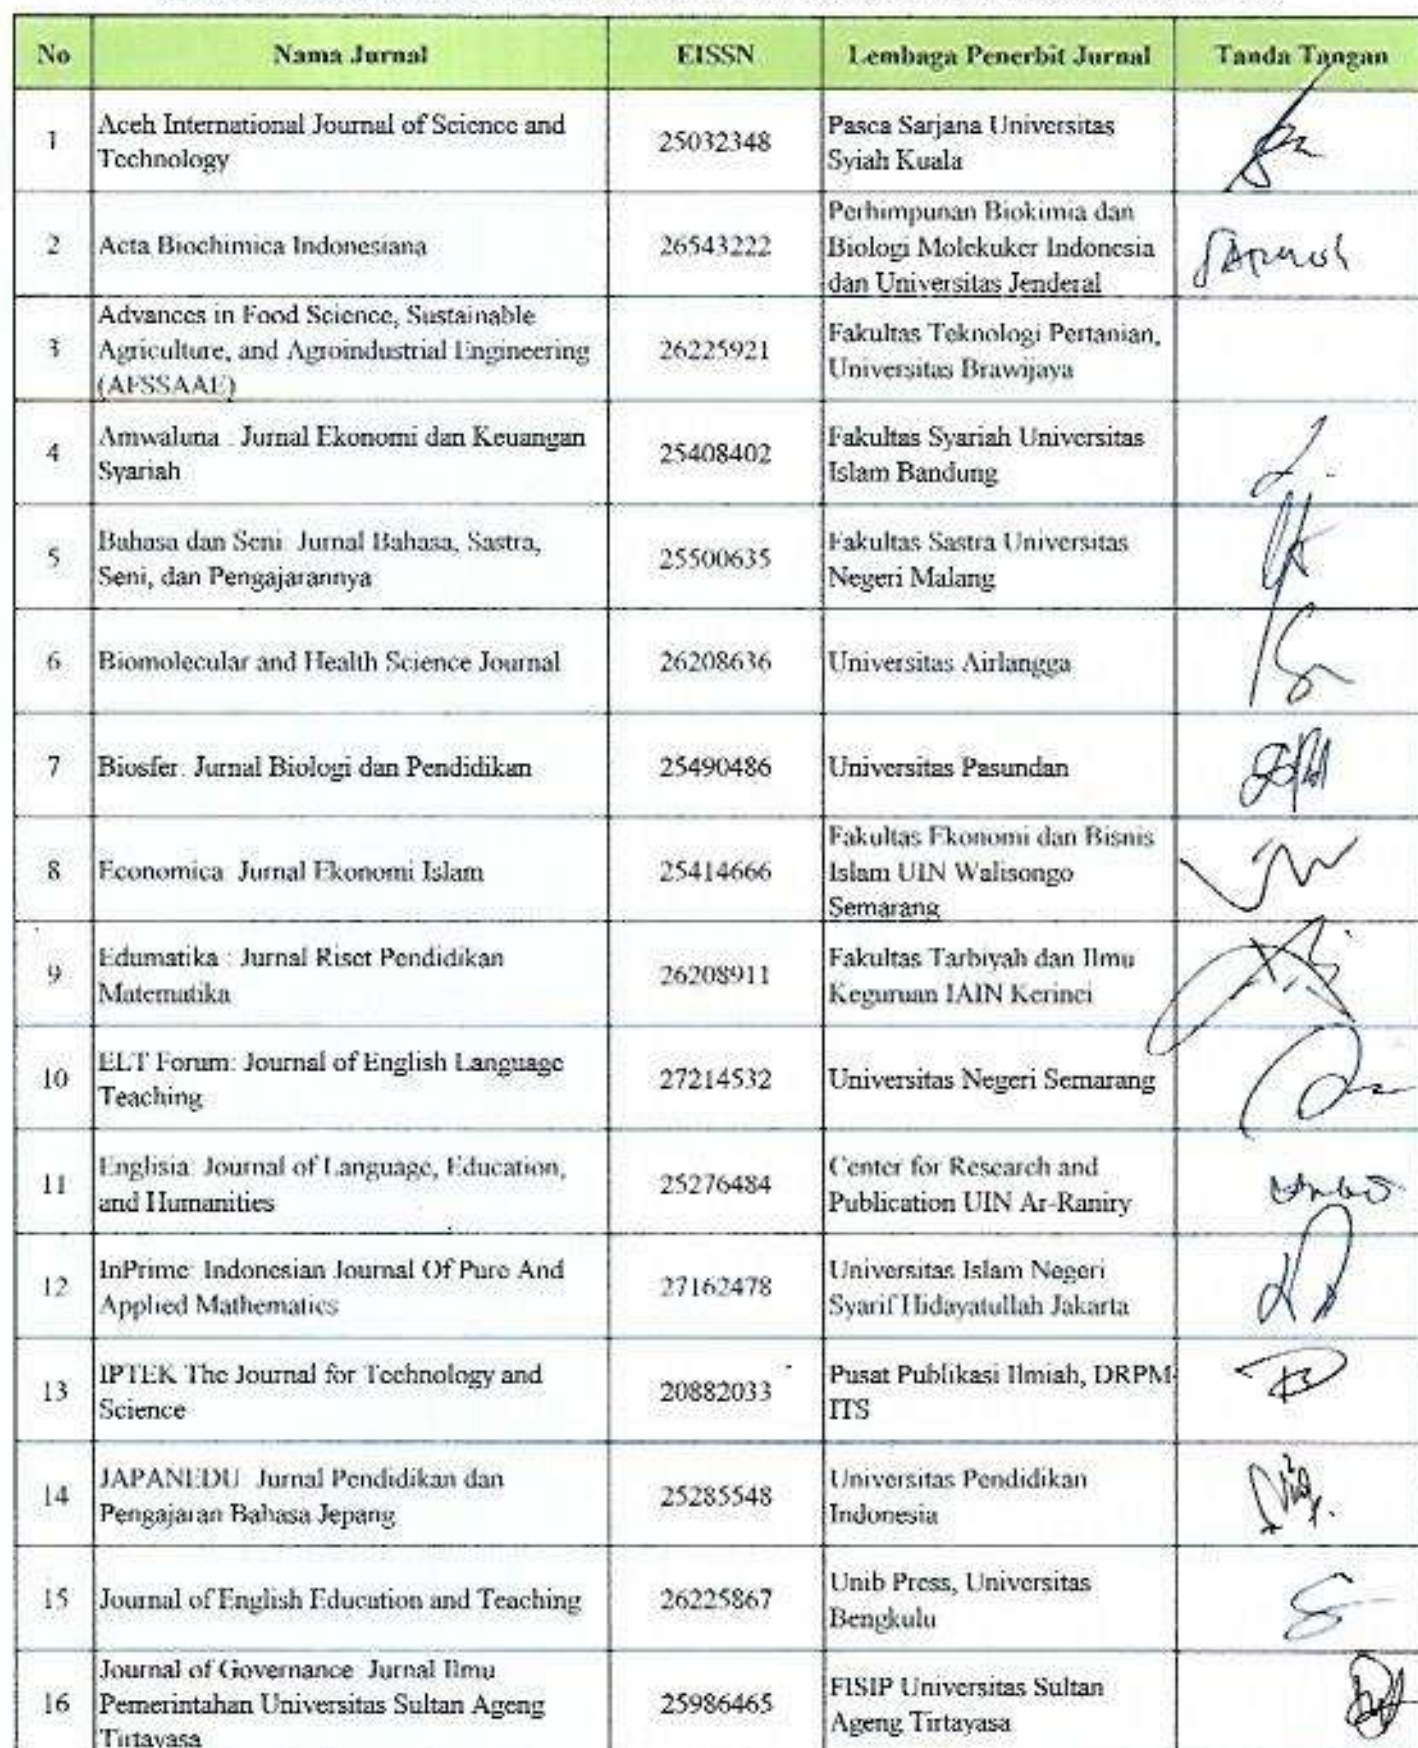 No
Nama Jurnal
EISSN
Lembaga Penerbit Jurnal
Tanda Tangan
1
Aceh International Journal of Science and
Technology
25032348
Pasca Sarjana Universitas
Syiah Kuala
2
Acta Biochimica Indonesiana
26543222
Perhimpunan Biokimia dan
Biologi Molekuker Indonesia
dan Universitas Jenderal
3
Advances in Food Science, Sustainable
Agriculture, and Agroindustrial Engineering
(AFSSAAE)
26225921
Fakultas Teknologi Pertanian,
Universitas Brawijaya
4
Amwaluna : Jurnal Ekonomi dan Keuangan
Syariah
25408402
Fakultas Syariah Universitas
Islam Bandung
5
Bahasa dan Seni: Jurnal Bahasa, Sastra,
Seni, dan Pengajarannya
25500635
Fakultas Sastra Universitas
Negeri Malang
6
Biomolecular and Health Science Journal
26208636
Universitas Airlangga
7
Biosfer: Jurnal Biologi dan Pendidikan
25490486
Universitas Pasundan
8
Economica: Jurnal Ekonomi Islam
25414666
Fakultas Ekonomi dan Bisnis
Islam UIN Walisongo
Semarang
9
Edumatika : Jurnal Riset Pendidikan
Matematika
26208911
Fakultas Tarbiyah dan Ilmu
Keguruan IAIN Kerinci
10
ELT Forum: Journal of English Language
Teaching
27214532
Universitas Negeri Semarang
11
Englisia: Journal of Language, Education,
and Humanities
25276484
Center for Research and
Publication UIN Ar-Raniry
12
InPrime: Indonesian Journal Of Pure And
Applied Mathematics
27162478
Universitas Islam Negeri
Syarif Hidayatullah Jakarta
13
IPTEK The Journal for Technology and
Science
20882033
Pusat Publikasi Ilmiah, DRPM-
ITS
14
JAPANEDU: Jurnal Pendidikan dan
Pengajaran Bahasa Jepang
25285548
Universitas Pendidikan
Indonesia
15
Journal of English Education and Teaching
26225867
Unib Press, Universitas
Bengkulu
16
Journal of Governance: Jurnal Ilmu
Pemerintahan Universitas Sultan Ageng
Tirtayasa
25986465
FISIP Universitas Sultan
Ageng Tirtayasa